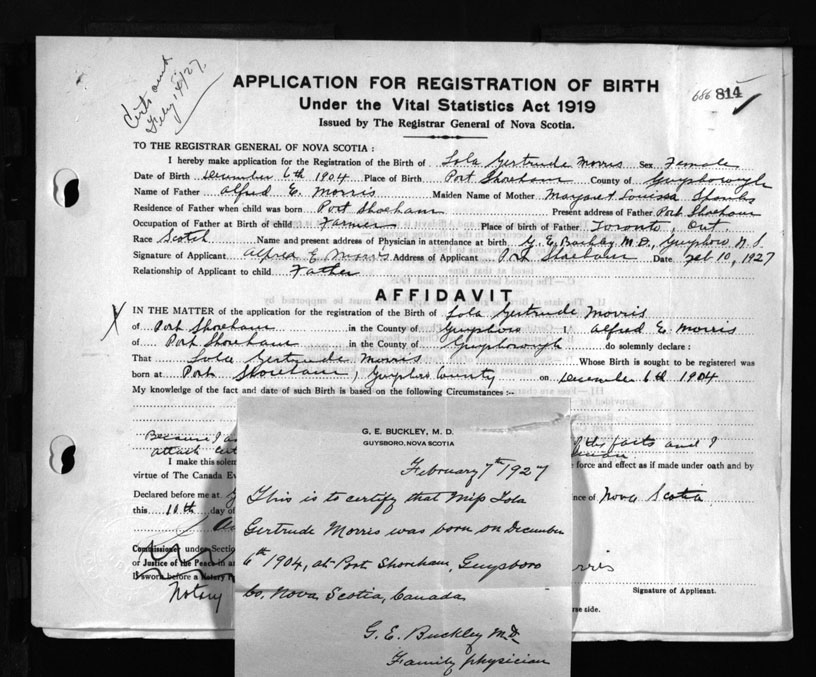 Certs sent
Feby 14/27
APPLICATION FOR REGISTRATION OF BIRTH
686 814
Under the Vital Statistics Act 1919
Issued by The Registrar General of Nova Scotia.
TO THE REGISTRAR GENERAL OF NOVA SCOTIA:
I hereby make application for the Registration of the Birth of Iola Gertrude Morris Sex Female
Date of Birth December 6th 1904 Place of Birth Port Shoreham County of Guysborough
Name of Father Alfred E. Morris Maiden Name of Mother Margaret Louisea
Residence of Father when child was born Port Shoreham Present address of Father Port Shoreham
Occupation of Father at Birth of child Farmer Place of birth of Father Toronto, Ont.
Race Scotch Name and present address of Physician in attendance at birth G. E. Buckley M.D., Guysboro N.S.
Signature of Applicant Alfred E Morris Address of Applicant Port Shoreham Date Feb 10, 1927
Relationship of Applicant to child Father
AFFIDAVIT
IN THE MATTER of the application for the registration of the Birth of Iola Gertrude Morris
of Port Shoreham in the County of Guysboro I Alfred E. Morris
of Port Shoreham in the County of Guysborough do solemnly declare:
That Iola Gertrude Morris Whose Birth is sought to be registered was
born at Port Shoreham, Guysboro County on December 6th 1904
My knowledge of the fact and date of such Birth is based on the following Circumstances:-
Because I of the facts and I
attach
I make this solem force and effect as if made under oath and by
virtue of The Canada Ev
Declared before me at nce of Nova Scotia
this 10th day of
Commissioner under Sectio
or Justice of the Peace in a rris
If sworn before a Notary P Signature of Applicant.
Notary rse side.
G. E. BUCKLEY, M. D.
GUYSBORO, NOVA SCOTIA
February 7th 1927
This is to certify that Miss Iola
Gertrude Morris was born on December
6th 1904, at Port Shoreham, Guysboro
Co. Nova Scotia, Canada
G. E. Buckley M.D.
Family physician